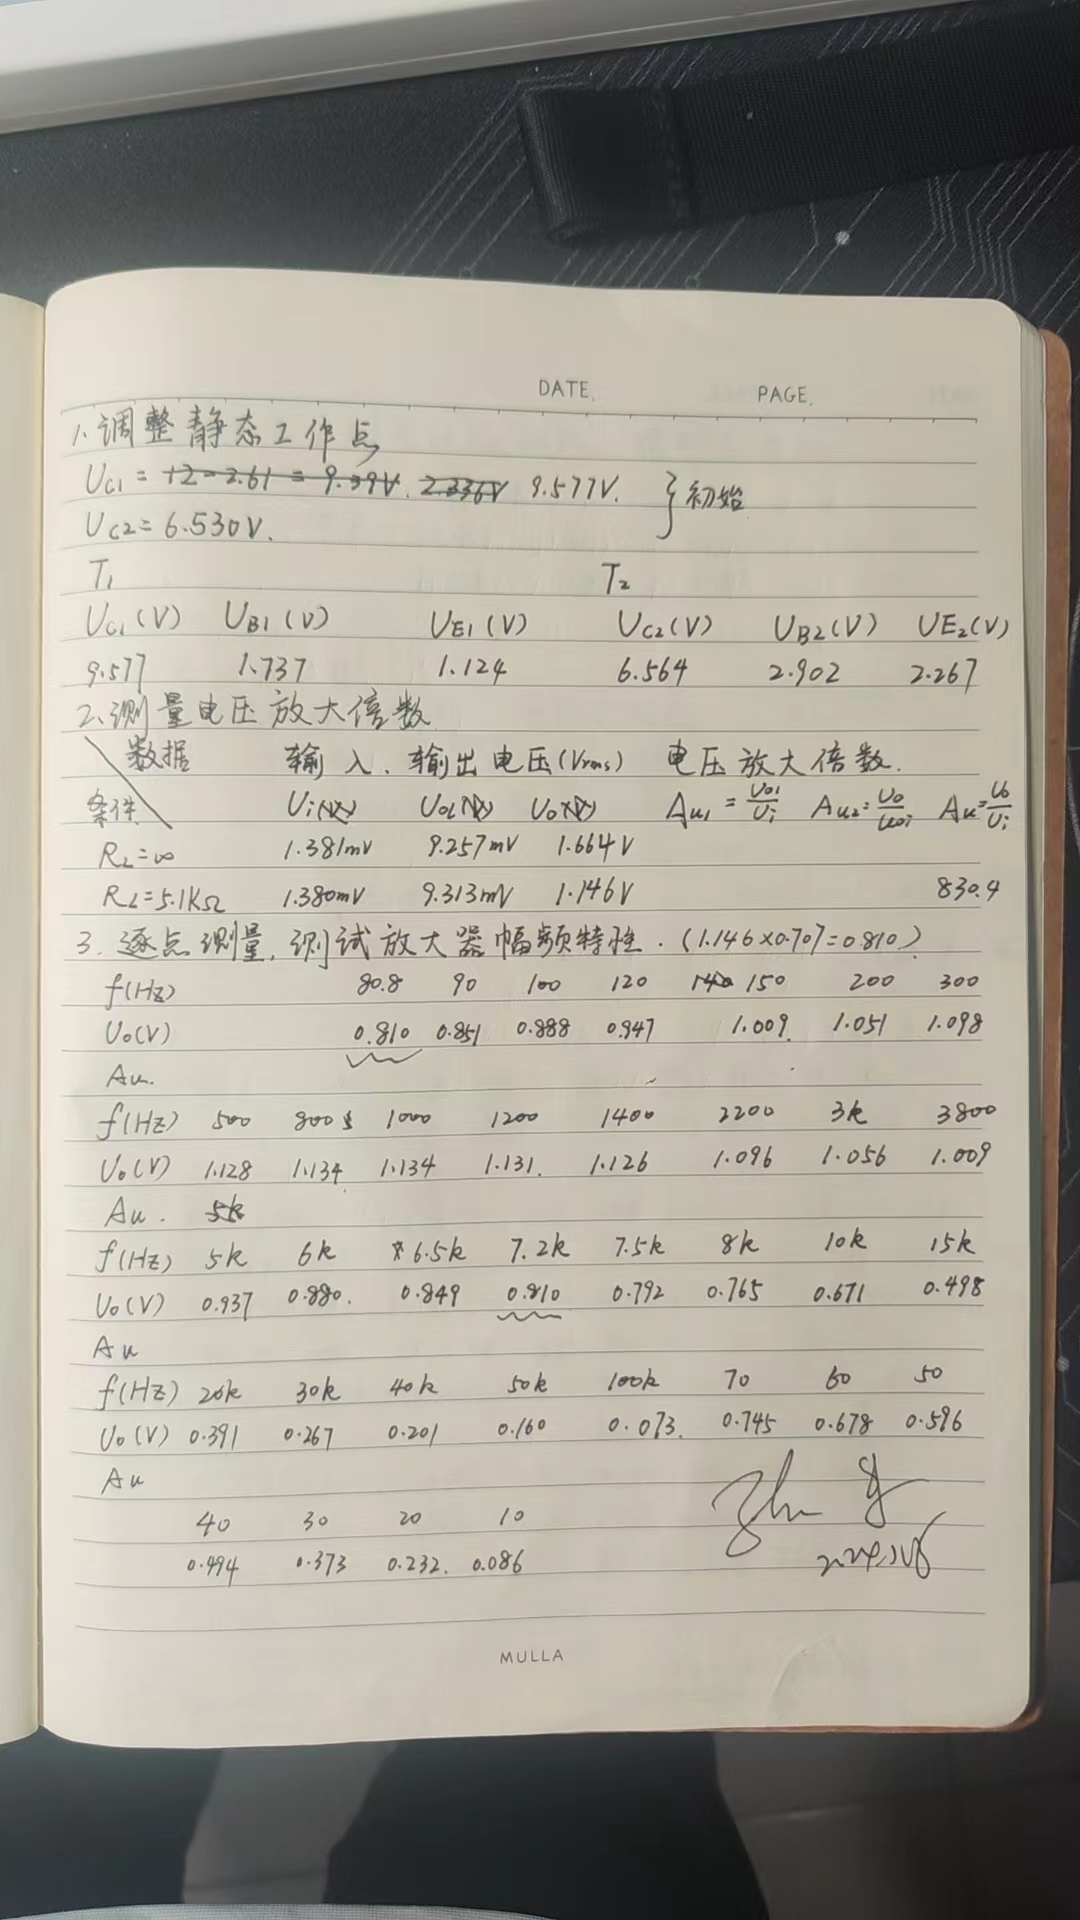 DATE. PAGE.
1. 调整静态工作点
UC1 = 12-2.61 = 9.39V. 2.336V 9.577V. } 初始
UC2 = 6.530V.
T1 T2
UC1(V) UB1(V) UE1(V) UC2(V) UB2(V) UE2(V)
9.577 1.737 1.124 6.564 2.902 2.267
2. 测量电压放大倍数
数据 输入、输出电压(Vrms) 电压放大倍数.
条件 Ui(V) Uo1(V) Uo(V) Au1 = Uo1/Ui Au2 = Uo/Uo1 Au = Uo/Ui
RL=∞ 1.381mV 9.257mV 1.664V
RL=5.1KΩ 1.380mV 9.313mV 1.146V 830.4
3. 逐点测量,测试放大器幅频特性. (1.146×0.707=0.810)
f(Hz) 80.8 90 100 120 140 150 200 300
Uo(V) 0.810 0.851 0.888 0.947 1.009. 1.051 1.098
Au.
f(Hz) 500 800 1000 1200 1400 2200 3k 3800
Uo(V) 1.128 1.134 1.134 1.131. 1.126 1.096 1.056 1.009
Au. 5k
f(Hz) 5k 6k 6.5k 7.2k 7.5k 8k 10k 15k
Uo(V) 0.937 0.880. 0.849 0.810 0.792 0.765 0.671 0.498
Au
f(Hz) 20k 30k 40k 50k 100k 70 60 50
Uo(V) 0.391 0.267 0.201 0.160 0.073. 0.745 0.678 0.596
Au
40 30 20 10
0.494 0.373 0.232. 0.086
MULLA